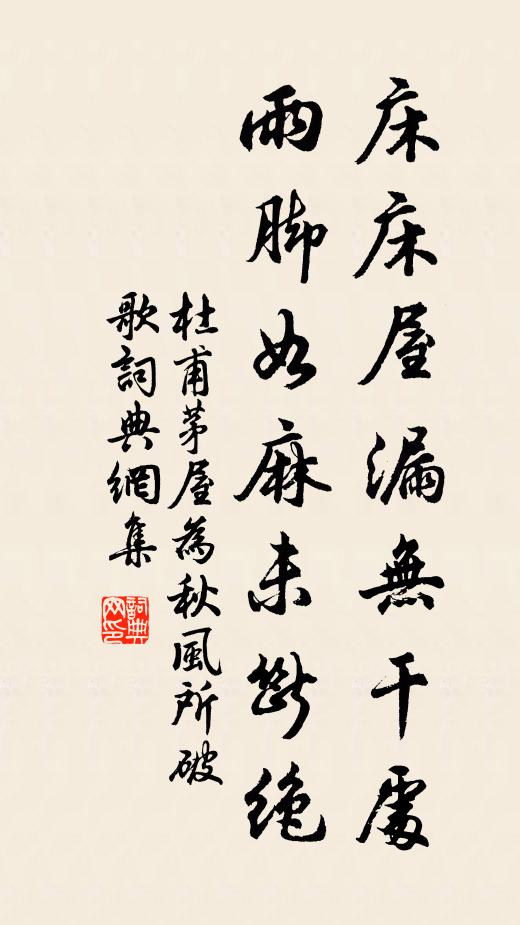 床床屋漏無干處
雨脚如麻未斷絶
杜甫茅屋為秋風所破
歌詞典網集
詞典
网印